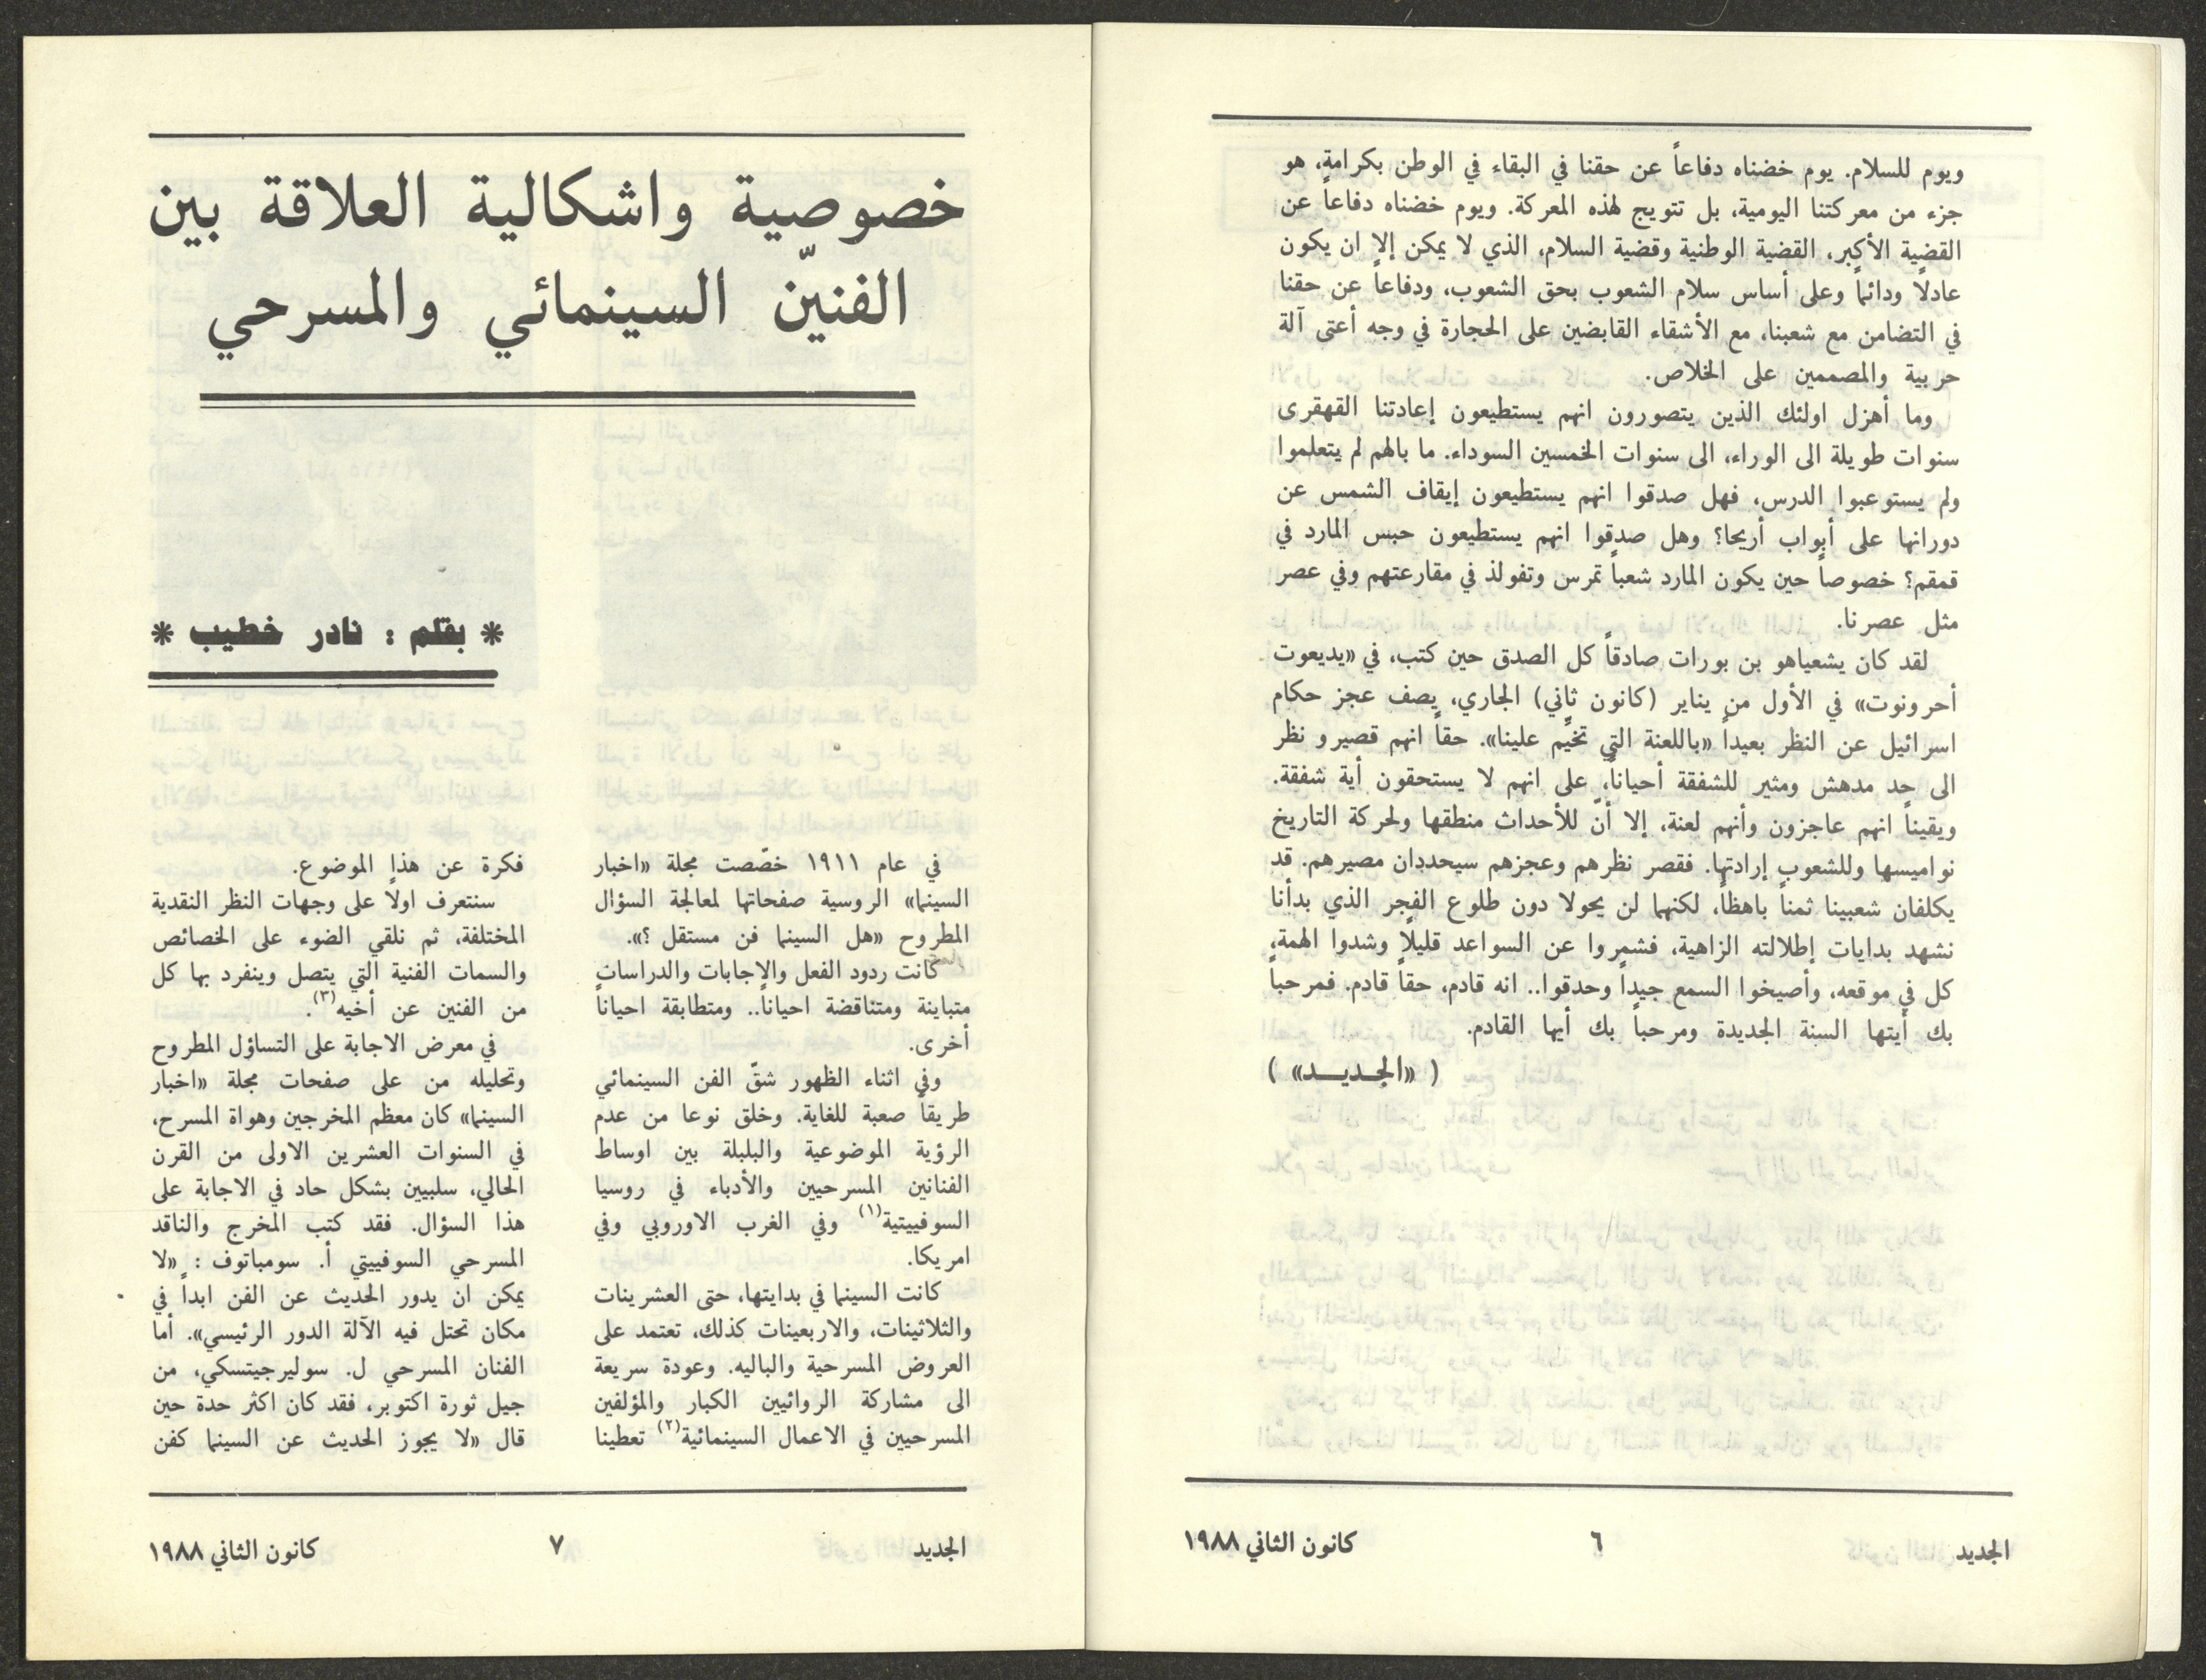 ويوم للسلام. يوم خضناه دفاعاً عن حقنا في البقاء في الوطن بكرامة، هو
جزء من معركتنا اليومية، بل تتويج لهذه المعركة. ويوم خضناه دفاعاً عن
القضية الأكبر، القضية الوطنية وقضية السلام، الذي لا يمكن إلا ان يكون
عادلاً ودائماً وعلى أساس سلام الشعوب بحق الشعوب، ودفاعاً عن حقنا
في التضامن مع شعبنا، مع الأشقاء القابضين على الحجارة في وجه أعتى آلة
حربية والمصممين على الخلاص.
وما أهزل اولئك الذين يتصورون انهم يستطيعون إعادتنا القهقرى
سنوات طويلة الى الوراء، الى سنوات الخمسين السوداء. ما بالهم لم يتعلموا
ولم يستوعبوا الدرس، فهل صدقوا انهم يستطيعون إيقاف الشمس عن
دورانها على أبواب أريحا؟ وهل صدقوا انهم يستطيعون حبس المارد في
قمقم؟ خصوصاً حين يكون المارد شعباً تمرس وتفولذ في مقارعتهم وفي عصر
مثل عصرنا.
لقد كان يشعياهو بن بورات صادقاً كل الصدق حين كتب، في «يديعوت
أحرونوت» في الأول من يناير (كانون ثاني) الجاري، يصف عجز حكام
اسرائيل عن النظر بعيداً «باللعنة التي تخيِّم علينا». حقاً انهم قصيرو نظر
الى حد مدهش ومثير للشفقة أحياناً، على انهم لا يستحقون أية شفقة.
ويقيناً انهم عاجزون وأنهم لعنة، إلا أنّ للأحداث منطقها ولحركة التاريخ
نواميسها وللشعوب إرادتها. فقصر نظرهم وعجزهم سيحددان مصيرهم. قد
يكلفان شعبينا ثمناً باهظاً، لكنهما لن يحولا دون طلوع الفجر الذي بدأنا
نشهد بدايات إطلالته الزاهية، فشمروا عن السواعد قليلاً وشدوا الهمة،
كل في موقعه، وأصيخوا السمع جيداً وحدقوا.. انه قادم، حقاً قادم. فمرحباً
بك أيتها السنة الجديدة ومرحباً بك أيها القادم.
( «الجـديـــد» )
الجديد
٦
كانون الثاني ١٩٨٨
خصوصية واشكالية العلاقة بين
الفنيّن السينمائي والمسرحي
* بقلم : نادر خطيب *
في عام ١٩١١ خصّصت مجلة «اخبار
السينما» الروسية صفحاتها لمعالجة السؤال
المطروح «هل السينما فن مستقل ؟».
كانت ردود الفعل والاجابات والدراسات
متباينة ومتناقضة احياناً.. ومتطابقة احياناً
أخرى.
وفي اثناء الظهور شقّ الفن السينمائي
طريقاً صعبة للغاية. وخلق نوعا من عدم
الرؤية الموضوعية والبلبلة بين اوساط
الفنانين المسرحيين والأدباء في روسيا
السوفييتية(١) وفي الغرب الاوروبي وفي
امريكا.
كانت السينما في بدايتها، حتى العشرينات
والثلاثينات، والاربعينات كذلك، تعتمد على
العروض المسرحية والباليه. وعودة سريعة
الى مشاركة الروائيين الكبار والمؤلفين
المسرحيين في الاعمال السينمائية(٢) تعطينا
فكرة عن هذا الموضوع.
سنتعرف اولاً على وجهات النظر النقدية
المختلفة، ثم نلقي الضوء على الخصائص
والسمات الفنية التي يتصل وينفرد بها كل
من الفنين عن أخيه(٣).
في معرض الاجابة على التساؤل المطروح
وتحليله من على صفحات مجلة «اخبار
السينما» كان معظم المخرجين وهواة المسرح،
في السنوات العشرين الاولى من القرن
الحالي، سلبيين بشكل حاد في الاجابة على
هذا السؤال. فقد كتب المخرج والناقد
المسرحي السوفييتي أ. سومباتوف : «لا
يمكن ان يدور الحديث عن الفن ابداً في
مكان تحتل فيه الآلة الدور الرئيسي». أما
الفنان المسرحي ل. سوليرجيتسكي، من
جيل ثورة اكتوبر، فقد كان اكثر حدة حين
قال «لا يجوز الحديث عن السينما كفن
الجديد
٧
كانون الثاني ١٩٨٨